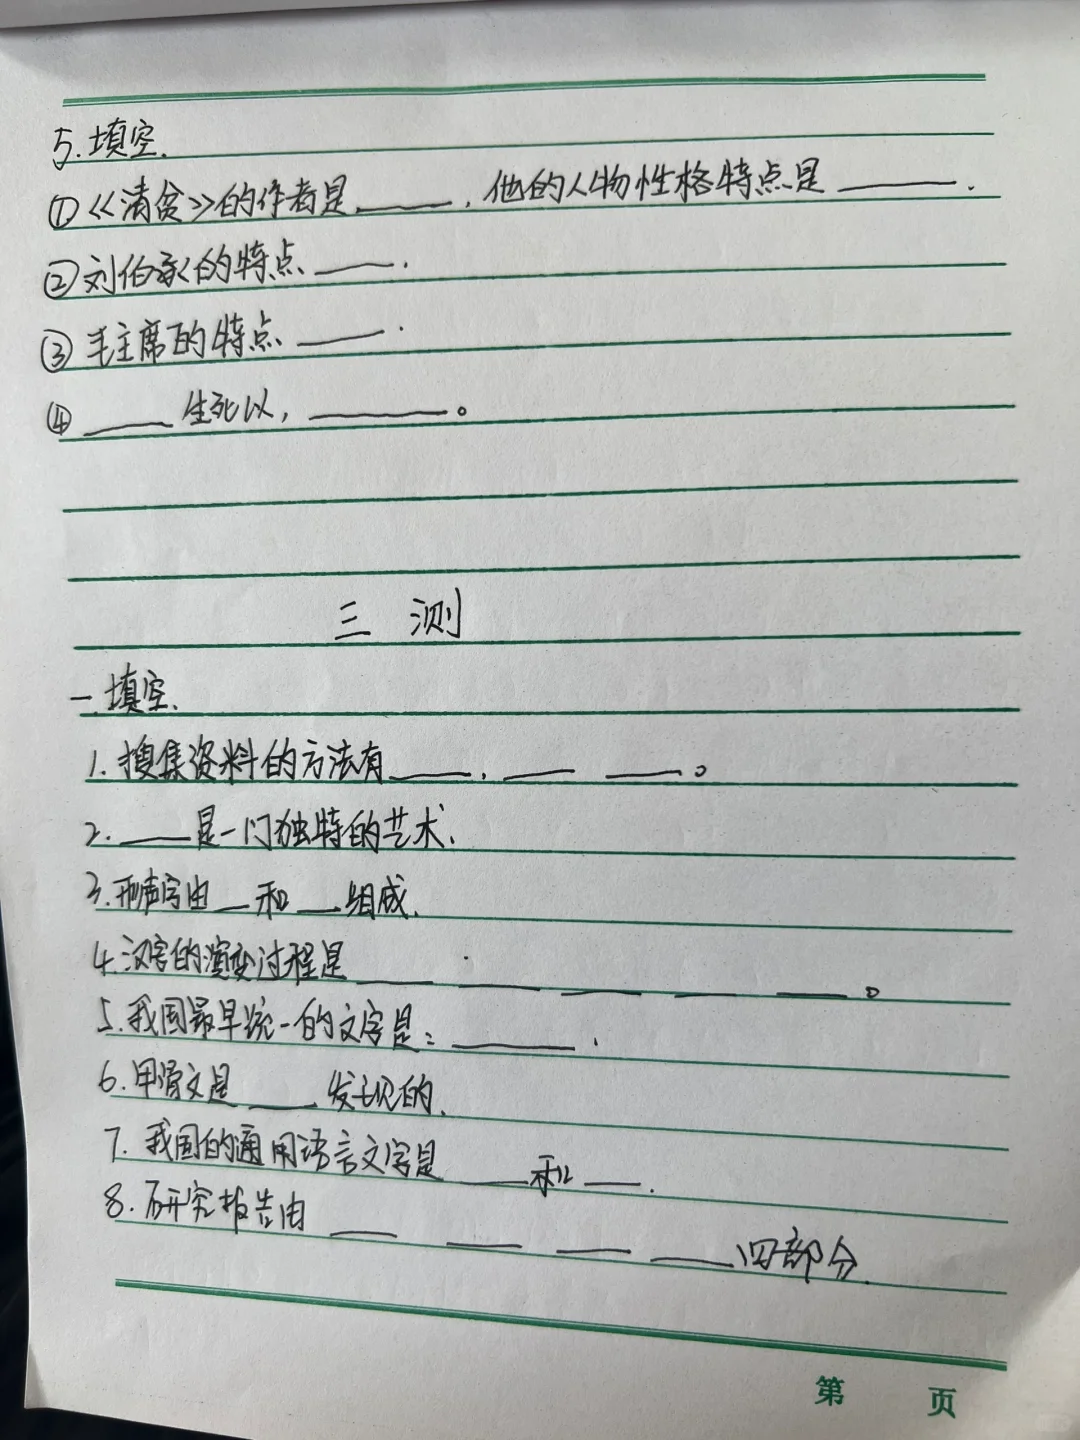 5.填空.
①《清贫》的作者是______,他的人物性格特点是______.
②刘伯承的特点______.
③毛主席的特点______.
④______生死以,______。
三 测
一.填空.
1.搜集资料的方法有______, ______ ______。
2.______是一门独特的艺术.
3.形声字由___和___组成.
4.汉字的演变过程是______ ______ ______ ______ ______。
5.我国最早统一的文字是:______.
6.甲滑文是______发现的.
7.我国的通用语言文字是______和______.
8.研究报告由______ ______ ______ ______四部分.
第 页